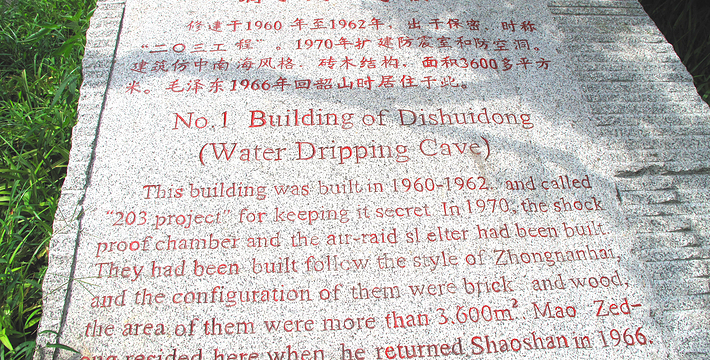 修建于1960年至1962年，出于保密，时称
“二〇三工程”。1970年扩建防震室和防空洞。
建筑仿中南海风格，砖木结构，面积3600多平方
米。毛泽东1966年回韶山时居住于此。
No.1 Building of Dishuidong
(Water Dripping Cave)
This building was built in 1960-1962, and called
“203 project” for keeping it secret. In 1970, the shock
proof chamber and the air-raid sl elter had been built.
They had been built follow the style of Zhongnanhai,
and the configuration of them were brick and wood,
the area of them were more than 3.600m². Mao Zed-
ong resided here when he returned Shaoshan in 1966.